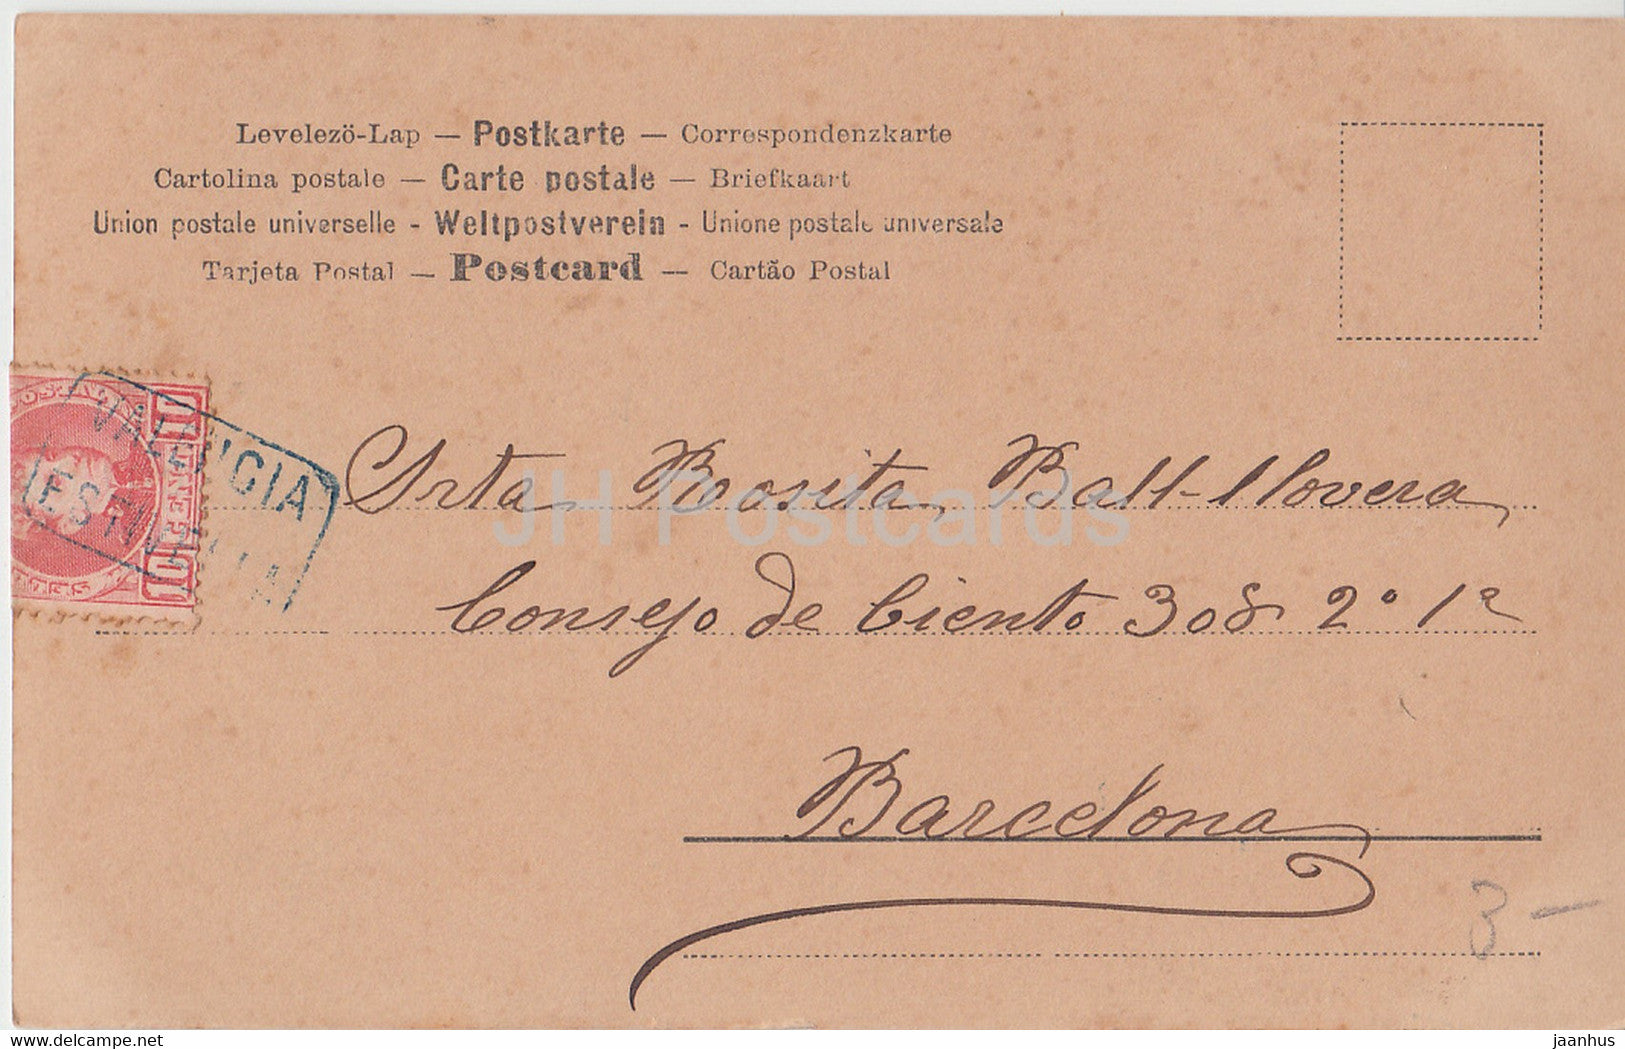 Levelezö-Lap — Postkarte — Correspondenzkarte
Cartolina postale — Carte postale — Briefkaart
Union postale universelle - Weltpostverein - Unione postale universale
Tarjeta Postal — Postcard — Cartão Postal
VALENCIA
ESTIVELLA
10
10
Srta Rosita Ball-llovera
JH Postcards
Consejo de Ciento 308 2º 1ª
Barcelona
3 —
delcampe.net
jaanhus